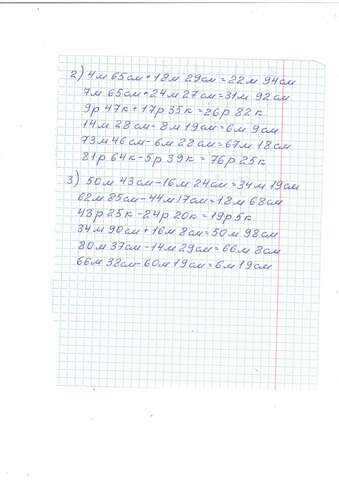 2) 4м 65см + 18м 29см = 22м 94см
7м 65см + 24м 27см = 31м 92см
9р 47к + 17р 35к = 26р 82к
14м 28см - 8м 19см = 6м 9см
73м 46см - 6м 28см = 67м 18см
81р 64к - 5р 39к = 76р 25к
3) 50м 43см - 16м 24см = 34м 19см
62м 85см - 44м 17см = 18м 68см
43р 25к - 24р 20к = 19р 5к
34м 90см + 16м 8см = 50м 98см
80м 37см - 14м 29см = 66м 8см
66м 38см - 60м 19см = 6м 19см